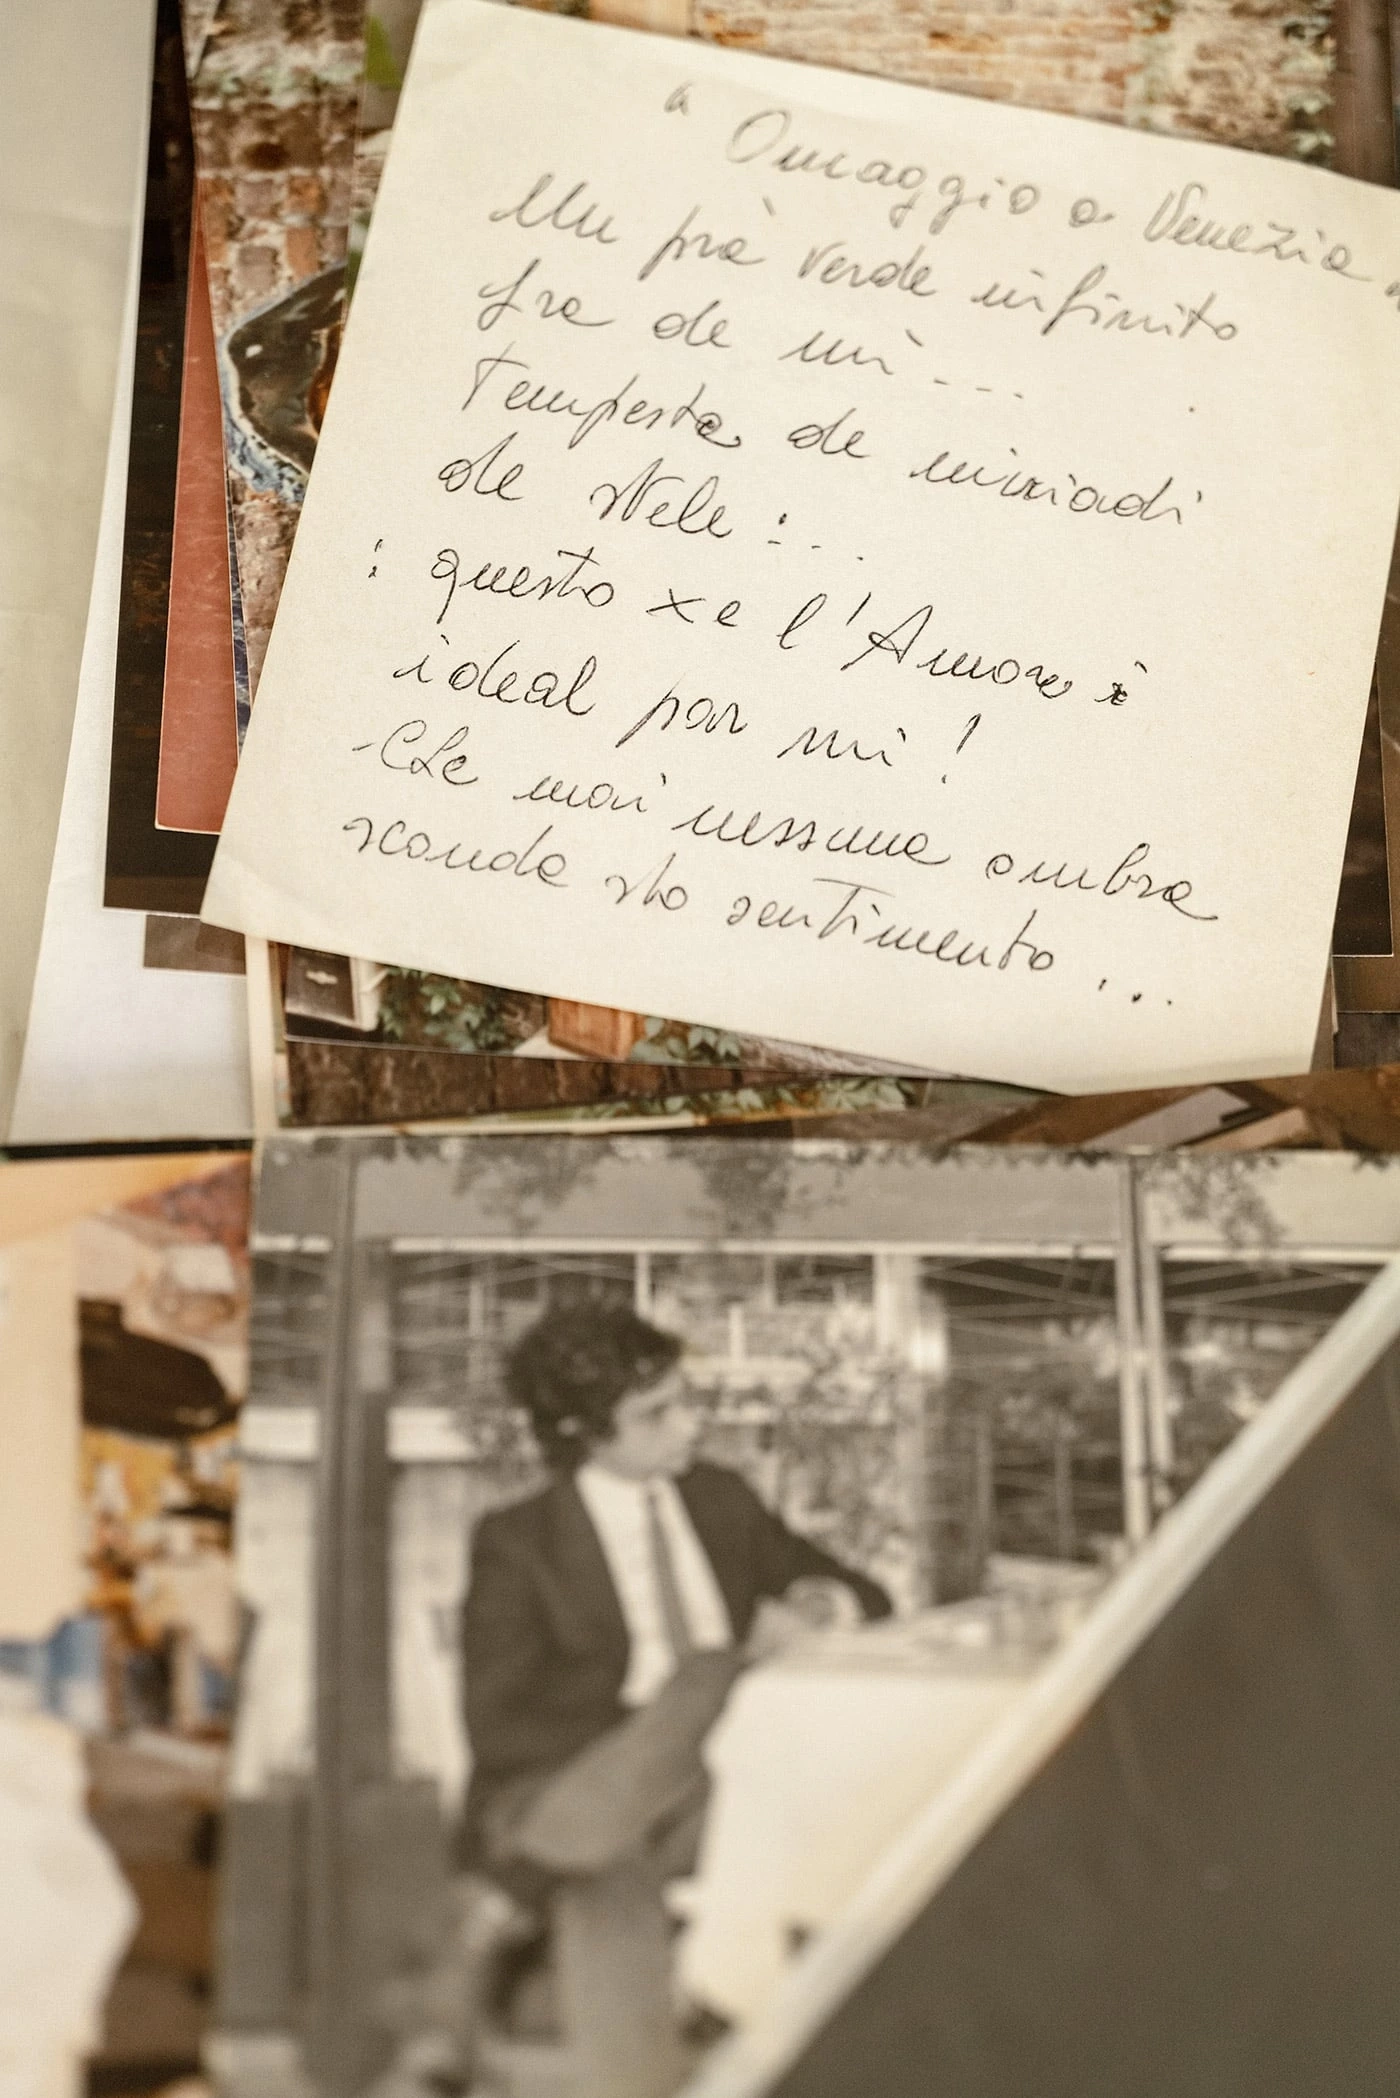 "Omaggio a Venezia"
Un prà verde infinito
fra de mi...
Tempesta de miriadi
de stele:...
: questo xe l'Amore :
ideal par mi!
- Che mai nessuna ombra
sconda sto sentimento...